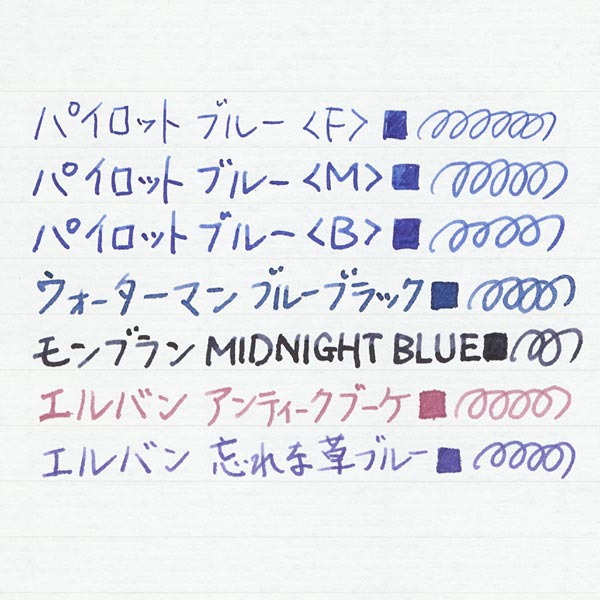 パイロット ブルー〈F〉
パイロット ブルー〈M〉
パイロット ブルー〈B〉
ウォーターマン ブルーブラック
モンブラン MIDNIGHT BLUE
エルバン アンティークブーケ
エルバン 忘れな草ブルー